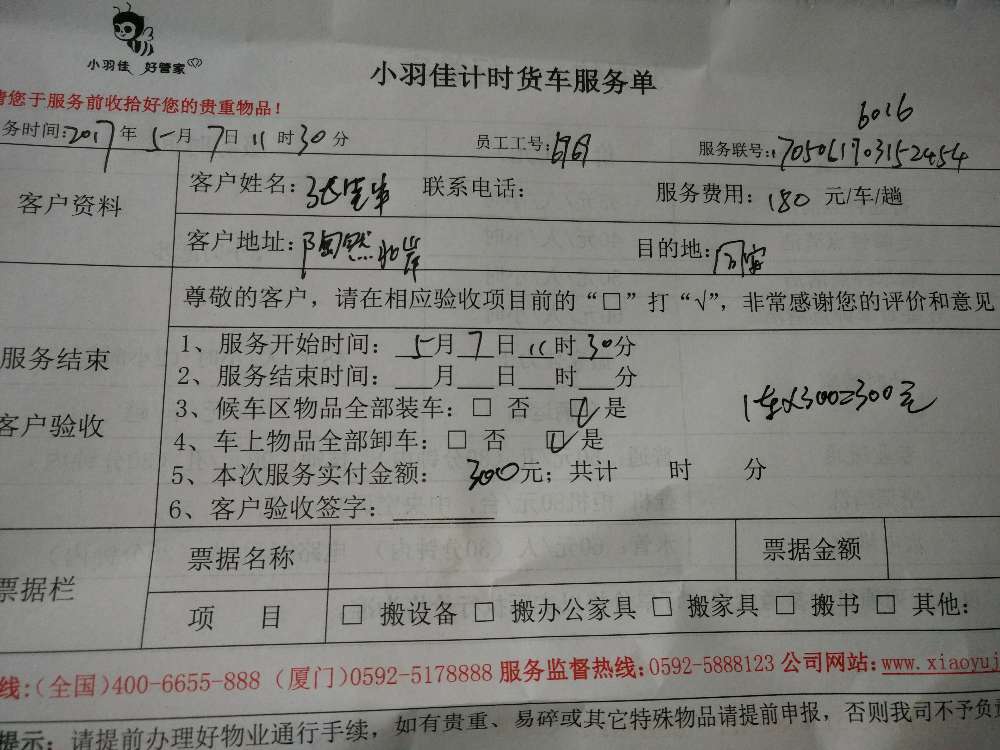 小羽佳 好管家
小羽佳计时货车服务单
请您于服务前收拾好您的贵重物品!
6016
务时间:2017年5月7日11时30分 员工工号:696 服务联号:1705061703152454
客户资料
客户姓名:张先生 联系电话: 服务费用:180元/车/趟
客户地址:陶然北岸 目的地:同安
尊敬的客户,请在相应验收项目前的“□”打“√”,非常感谢您的评价和意见
服务结束
客户验收
1、服务开始时间:5月7日11时30分
2、服务结束时间:___月___日___时___分
3、候车区物品全部装车:□ 否 ☑是
4、车上物品全部卸车:□ 否 ☑是
1车x300=300元
5、本次服务实付金额: 300元;共计 时 分
6、客户验收签字:
票据栏
票据名称 票据金额
项 目 □ 搬设备 □ 搬办公家具 □ 搬家具 □ 搬书 □ 其他:
线:(全国)400-6655-888(厦门)0592-5178888 服务监督热线:0592-5888123 公司网站:www.xiaoyuj
提示:请提前办理好物业通行手续,如有贵重、易碎或其它特殊物品请提前申报,否则我司不予负责